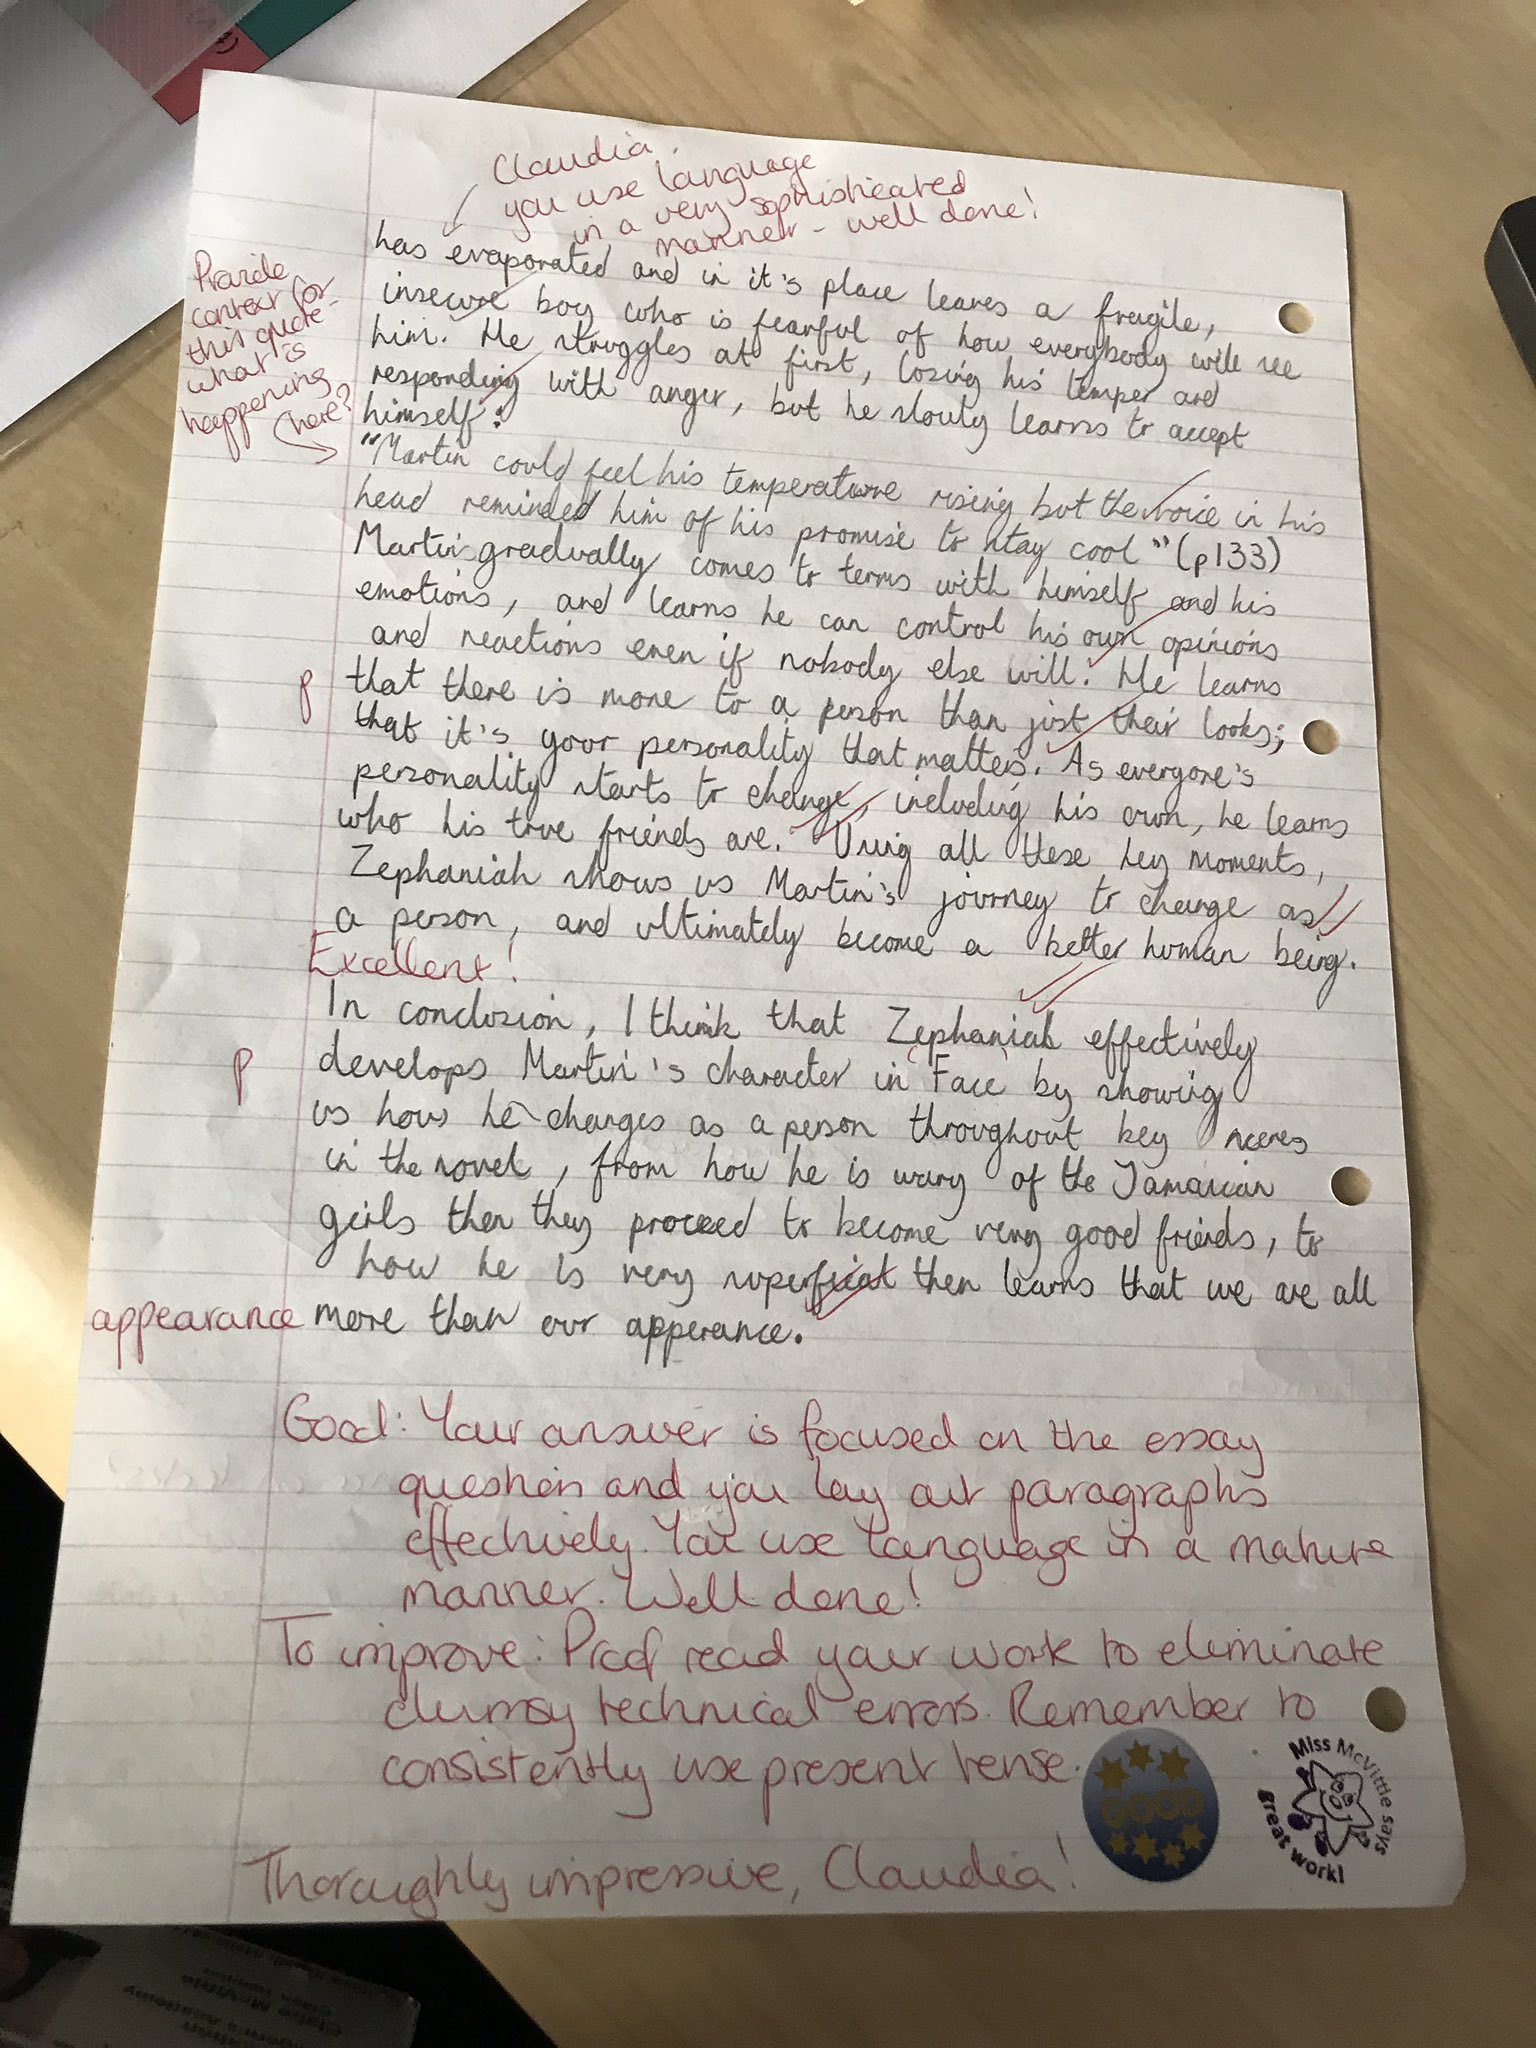 Claudia.
you use language
in a very sophisticated
manner - well done!
has evaporated and in it's place leaves a fragile,
insecure boy who is fearful of how everybody will see
him. He struggles at first, losing his temper and
responding with anger, but he slowly learns to accept
himself:
Provide
context for
this quote -
what is
happening
here?
"Martin could feel his temperature rising but the voice in his
head reminded him of his promise to stay cool" (p133)
Martin gradually comes to terms with himself and his
emotions, and learns he can control his own opinions
and reactions even if nobody else will. He learns
p that there is more to a person than just their looks;
that it's your personality that matters. As everyone's
personality starts to change, including his own, he learns
who his true friends are. Using all these key moments,
Zephaniah shows us Martin's journey to change as
a person, and ultimately become a better human being.
Excellent!
In conclusion, I think that Zephaniah effectively
p develops Martin's character in 'Face' by showing
us how he changes as a person throughout key scenes
in the novel, from how he is wary of the Jamaican
girls then they proceed to become very good friends, to
how he is very superficial then learns that we are all
appearance more than our apperance.
Good: Your answer is focused on the essay
question and you lay out paragraphs
effectively. You use language in a mature
manner. Well done!
To improve: Proof read your work to eliminate
clumsy technical errors. Remember to
consistently use present tense.
GOOD
Miss McVittie says
great work!
Thoroughly impressive, Claudia!